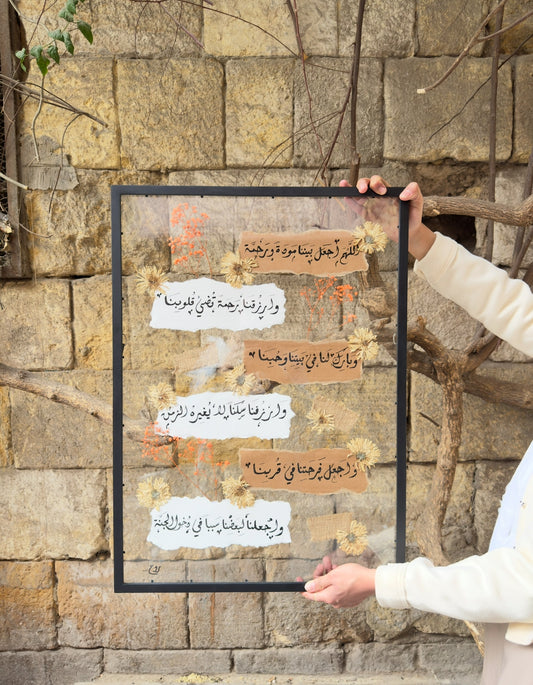 اللهم اجعل بيننا مودة ورحمة
وارزقنا رحمة تُضيء قلوبنا
وبارك لنا في بيتنا وحبنا
وارزقنا سكنًا لا يغيره الزمن
واجعل فرحتنا في قربنا
واجعلنا لبعضنا سببا في دخول الجنة